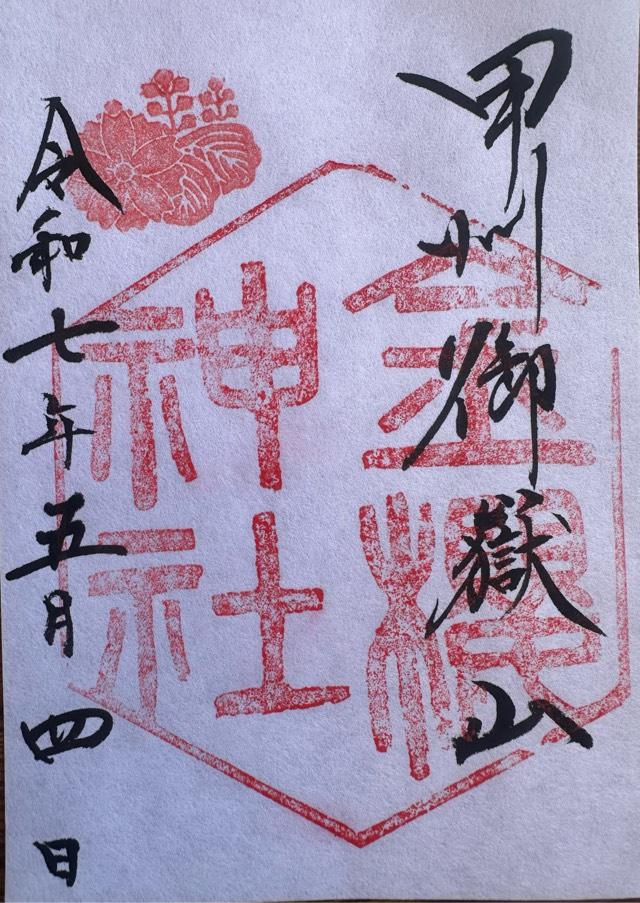 甲州御嶽山
金櫻
神社
令和七年五月四日